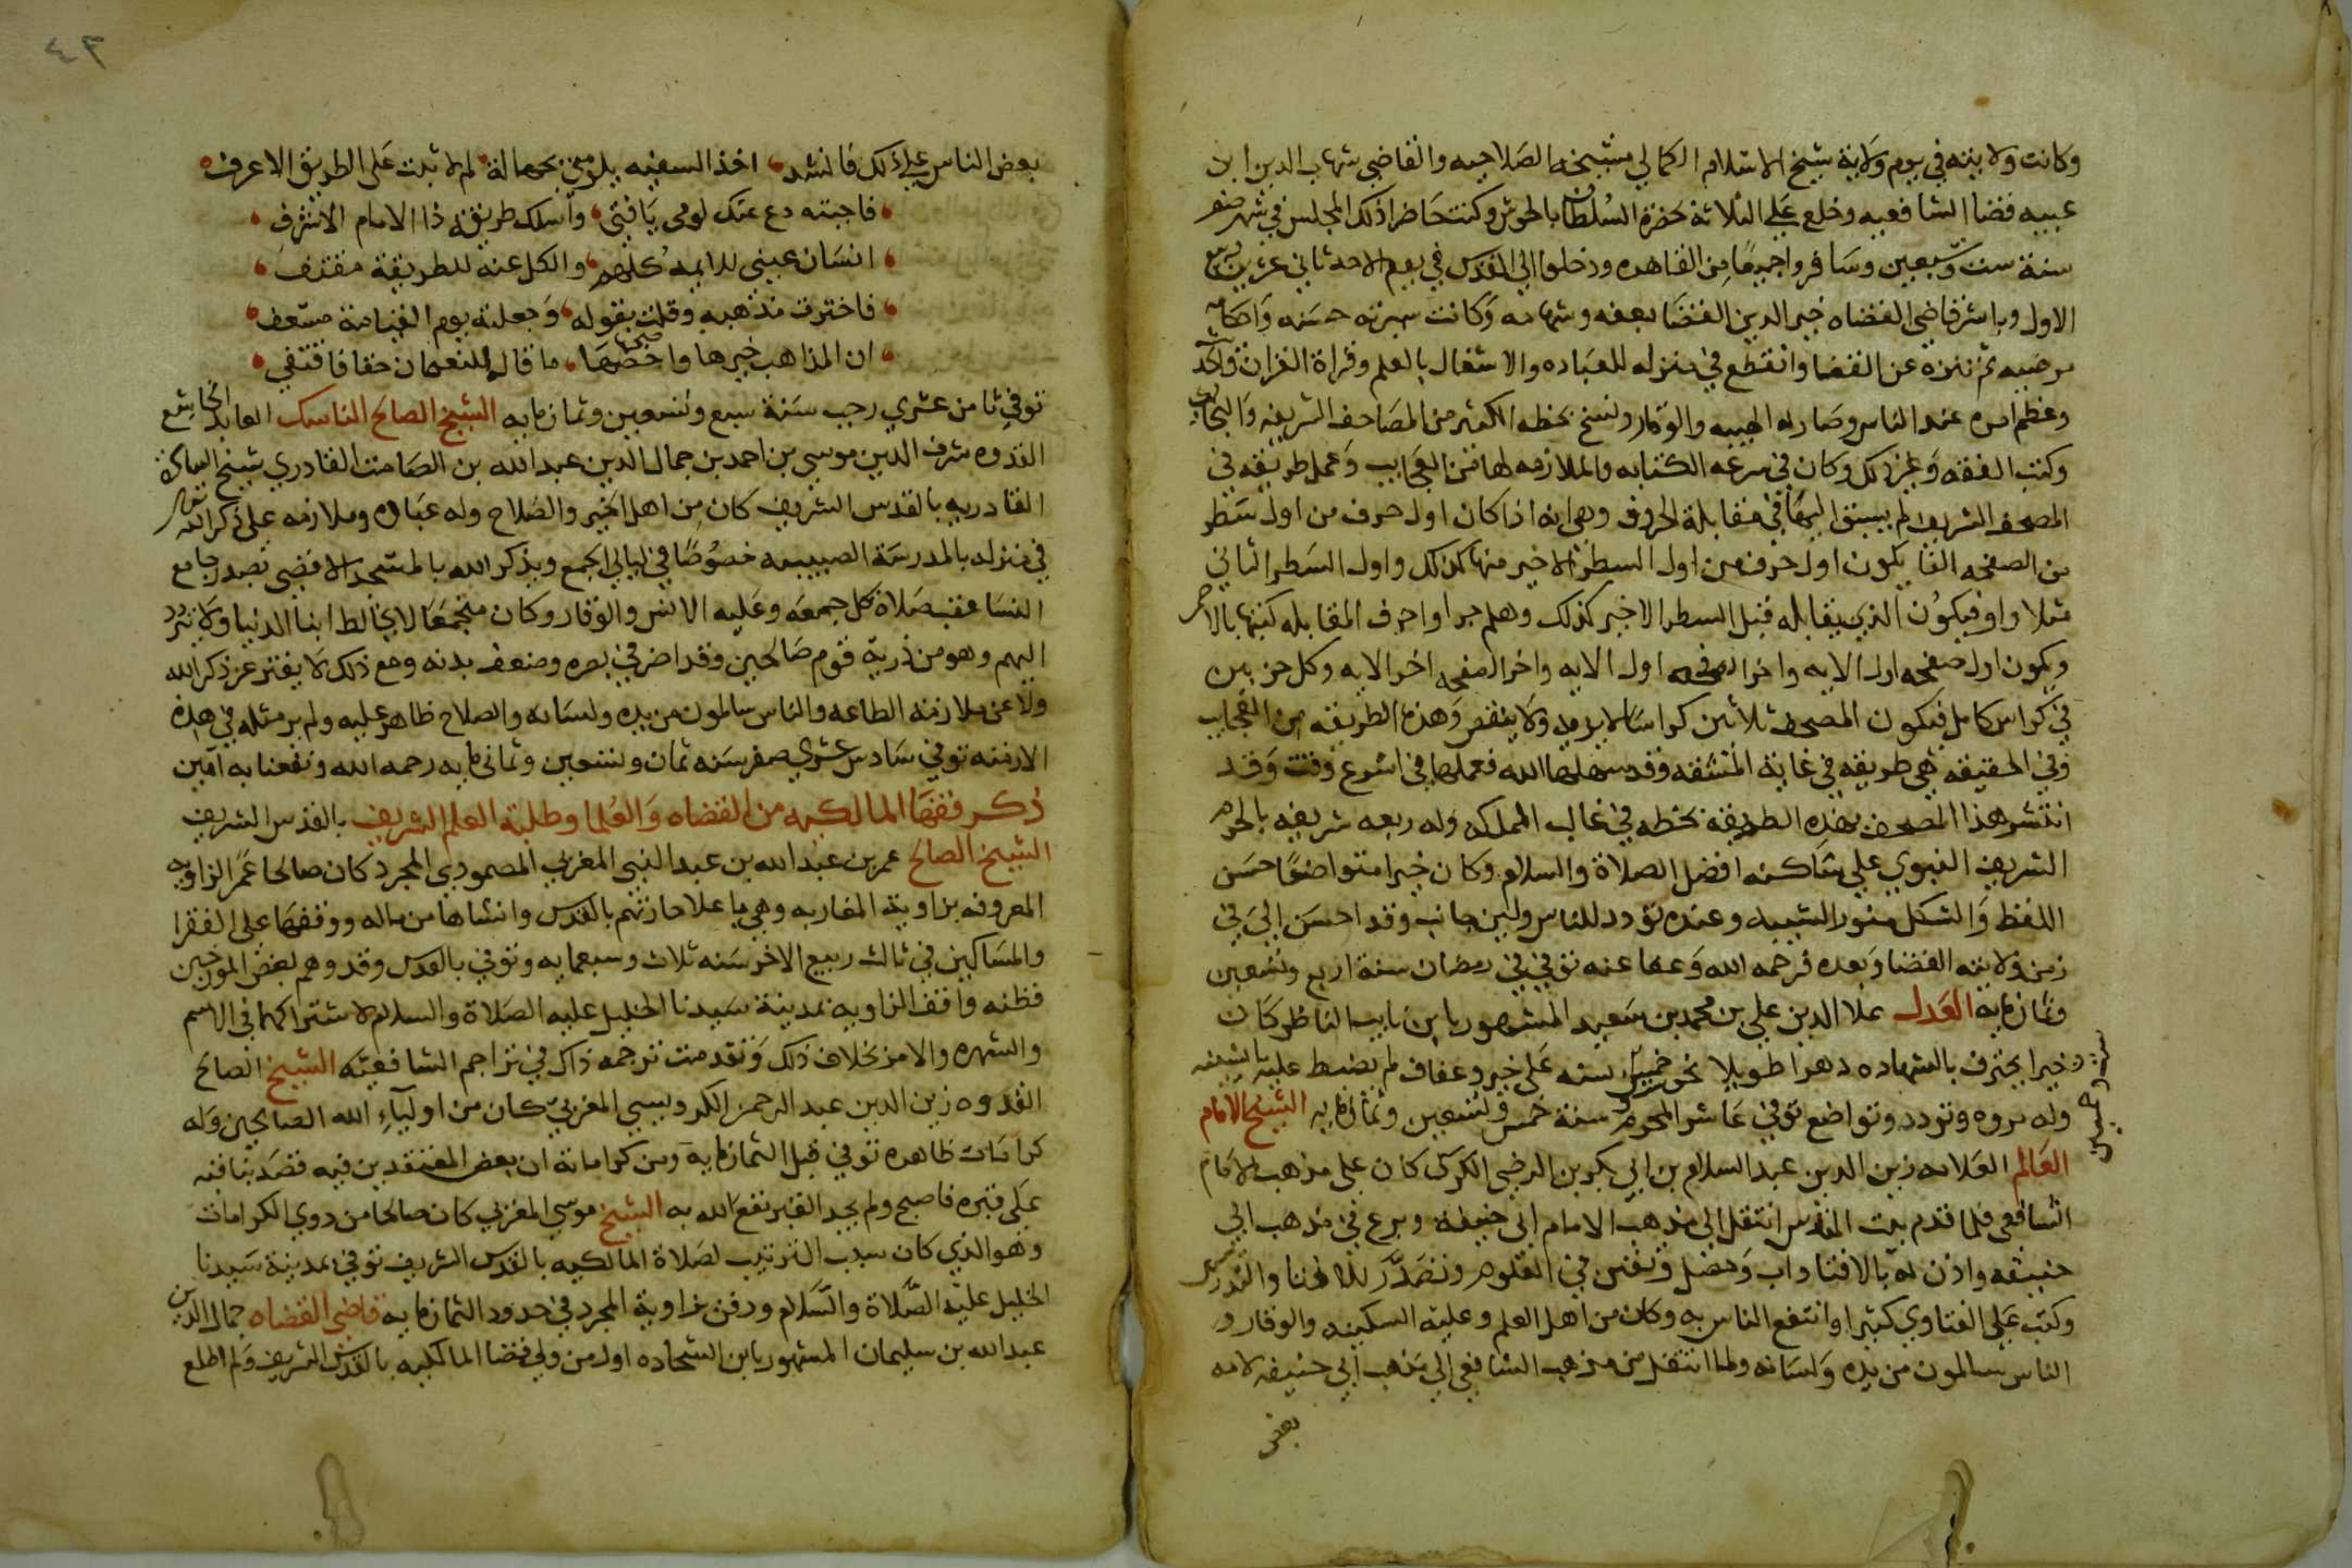 وكانت ولايته في يوم ولاية شيخ الاسلام الكمالي مشيخه الصلاحيه والقاضي شهاب الدين ابن
عبيه قضا الشافعيه وخلع علي الثلاثة حضرة السلطان بالحوش وكنت حاضرا ذلك المجلس في شهر صفر
سنة ست وسبعين وسافروا جميعا من القاهره ودخلوا الي القدس في يوم الاحد ثاني عشرين ربيع
الاول وباشر قاضي القضاه خير الدين القضا بعفه وشهامه وكانت سيرته حسنه واحكامه
مرضيه ثم تنزه عن القضا وانقطع في منزله للعباده والاشتغال بالعلم وقراة القران واقرائه
وعظم امره عند الناس وصار له الهيبه والوقار ونسخ بخطه الكثير من المصاحف الشريفه والبخاري
وكتب الفقه وغير ذلك وكان في سرعه الكتابه والملازمه لها من العجايب وعمل طريقه في
المصحف الشريف لم يسبق اليها في مقابلة الحروف وهي انه اذا كان اول حرف من اول سطر
من الصفحه الفا يكون اول حرف من اول السطر الاخير منها كذلك واول السطر الثاني
مثلا واو فيكون الذي يقابله قبل السطر الاخير كذلك وهلم جرا واحرف المقابله كتبها بالاحمر
ويكون اول صفحه اول الايه واخر الصفحه اول الايه واخر الصفحه اخر الايه وكل حزبين
في كراس كامل فيكون المصحف ثلاثين كراسا لا يزيد ولا ينقص وهذه الطريقه من العجايب
وفي الحقيقه هي طريقه في غاية المشقه وقد سهلها الله فعملها في اسرع وقت وقد
انتشر هذا المصحف بهذه الطريقه بخطه في غالب المملكه وله ربعه شريفه بالحرم
الشريف النبوي علي ساكنه افضل الصلاة والسلام وكان خيرا متواضعا حسن
اللفظ والشكل منور الشيبه وعنده تودد للناس ولين جانب وقد احسن الي في
زمن ولايته القضا وبعده فرحمه الله وعفا عنه توفي في رمضان سنة اربع وتسعين
وثمانمايه العدل علا الدين علي بن محمد بن سعيد المشهور بابن نايب الناظر كان
خيرا يحترف بالشهاده دهرا طويلا نحو خمسين سنه علي خير وعفاف لم يضبط عليه ما يشينه
وله مروه وتودد وتواضع توفي عاشر المحرم سنة خمس وتسعين وثمانمايه الشيخ الامام
العالم العلامه زين الدين عبد السلام بن ابي بكر بن الرضي الكركي كان علي مذهب الامام
الشافعي فلما قدم بيت المقدس انتقل الي مذهب الامام ابي حنيفة وبرع في مذهب ابي
حنيفه واذن له بالافتا واب وفضل وتفنن في العلوم وتصدر للافتا والتدريس
وكتب علي الفتاوي كثيرا وانتفع الناس به وكان من اهل العلم وعليه السكينه والوقار و
الناس سالمون من يده ولسانه ولما انتقل من مذهب الشافعي الي مذهب ابي حنيفه لامه
بعض
٤٣
بعض الناس علي ذلك فانشد اخذ السفيه يلومني بجهالة لم لا ثبت على الطريق الاعرف
فاجبته دع عنك لومي يا فتى واسلك طريقة ذا الامام الاشرف
انسان عيني للايمه كلهم والكل عنه للطريقة مقتف
فاخترت مذهبه وقلت بقوله وجعلته يوم القيامة مسعف
ان المذاهب خيرها واصحها ما قاله النعمان حقا فاقتفي
توفي ثامن عشري رجب سنة سبع وتسعين وثمانمايه الشيخ الصالح الناسك العابد الخاشع
القدوه شرف الدين موسي بن احمد بن جمال الدين عبد الله بن الصامت القادري شيخ الساده
القادريه بالقدس الشريف كان من اهل الخير والصلاح وله عباده وملازمه على ذكر الله تعالى
في منزله بالمدرسة الصبيبيه خصوصا في ليالي الجمع ويذكر الله بالمسجد الاقصى بصدر جامع
النسا عقب صلاة كل جمعه وعليه الانس والوقار وكان منجمعا لا يخالط ابنا الدنيا ولا يتردد
اليهم وهو من ذرية قوم صالحين وقد اضر في بصره وضعف بدنه ومع ذلك لا يفتر عن ذكر الله
ولا عن ملازمة الطاعه والناس سالمون من يده ولسانه والصلاح ظاهر عليه ولم ير مثله في هذه
الازمنه توفي سادس عشري صفر سنه ثمان وتسعين وثمانمايه رحمه الله ونفعنا به آمين
ذكر فقها المالكيه من القضاه والعلما وطلبة العلم الشريف بالقدس الشريف
الشيخ الصالح عمر بن عبد الله بن عبد النبي المغربي المصمودي المجرد كان صالحا عمر الزاويه
المعروفه بزاوية المغاربه وهي با علا حارتهم بالقدس وانشاها من ماله ووقفها على الفقرا
والمساكين في ثالث ربيع الاخر سنه ثلاث وسبعمايه وتوفي بالقدس وقد وهم بعض المورخين
فظنه واقف الزاويه بمدينة سيدنا الخليل عليه الصلاة والسلام لاشتراكهما في الاسم
والشهره والامر بخلاف ذلك وتقدمت ترجمه ذاك في تراجم الشافعيه الشيخ الصالح
القدوه زين الدين عبد الرحمن الكردبيسي المغربي كان من اولياء الله الصالحين وله
كرامات ظاهره توفي قبل الثمانمايه ومن كراماته ان بعض المعتقدين فيه قصد بنا قبه
على قبره فاصبح ولم يجد القبر نفع الله به الشيخ موسي المغربي كان صالحا من ذوي الكرامات
وهو الذي كان سبب الترتيب لصلاة المالكيه بالقدس الشريف توفي بمدينة سيدنا
الخليل عليه الصلاة والسلام ودفن بزاوية المجرد في حدود الثمانمايه قاضي القضاه جمال الدين
عبد الله بن سليمان المشهور بابن الشحاده اول من ولي قضا المالكيه بالقدس الشريف ولم اطلع